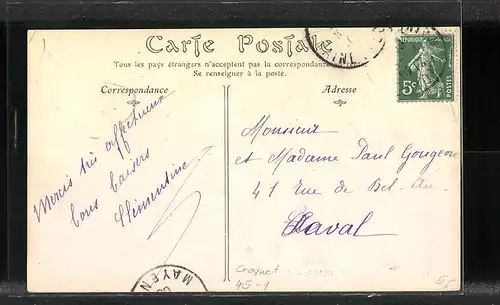 Carte Postale
Tous les pays étrangers n'acceptent pas la correspondance
Se renseigner à la poste.
Correspondance
Adresse
RÉPUBLIQUE FRANÇAISE
5c
POSTES
Merci très affectueux
bons baisers
Clémentine
Monsieur
et Madame Paul Gougeon
41 rue de Bel-Air
Laval
MAYEN
Croquet
45-1